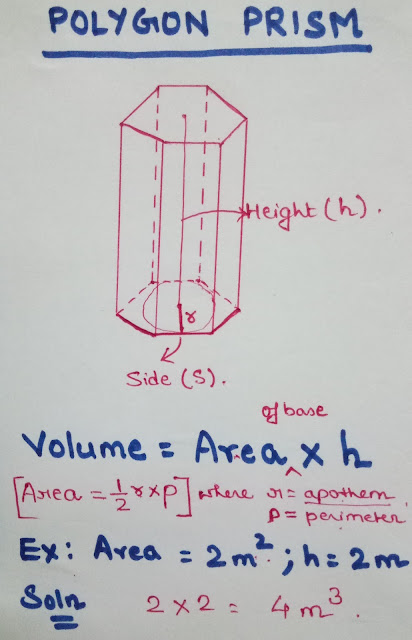 POLYGON PRISM
Height (h).
r
Side (S).
of base
Volume = Area ^ x h
[Area = 1/2 r x p] where r = apothem.
P = perimeter
Ex: Area = 2m²; h = 2m
Soln 2 x 2 = 4m³.